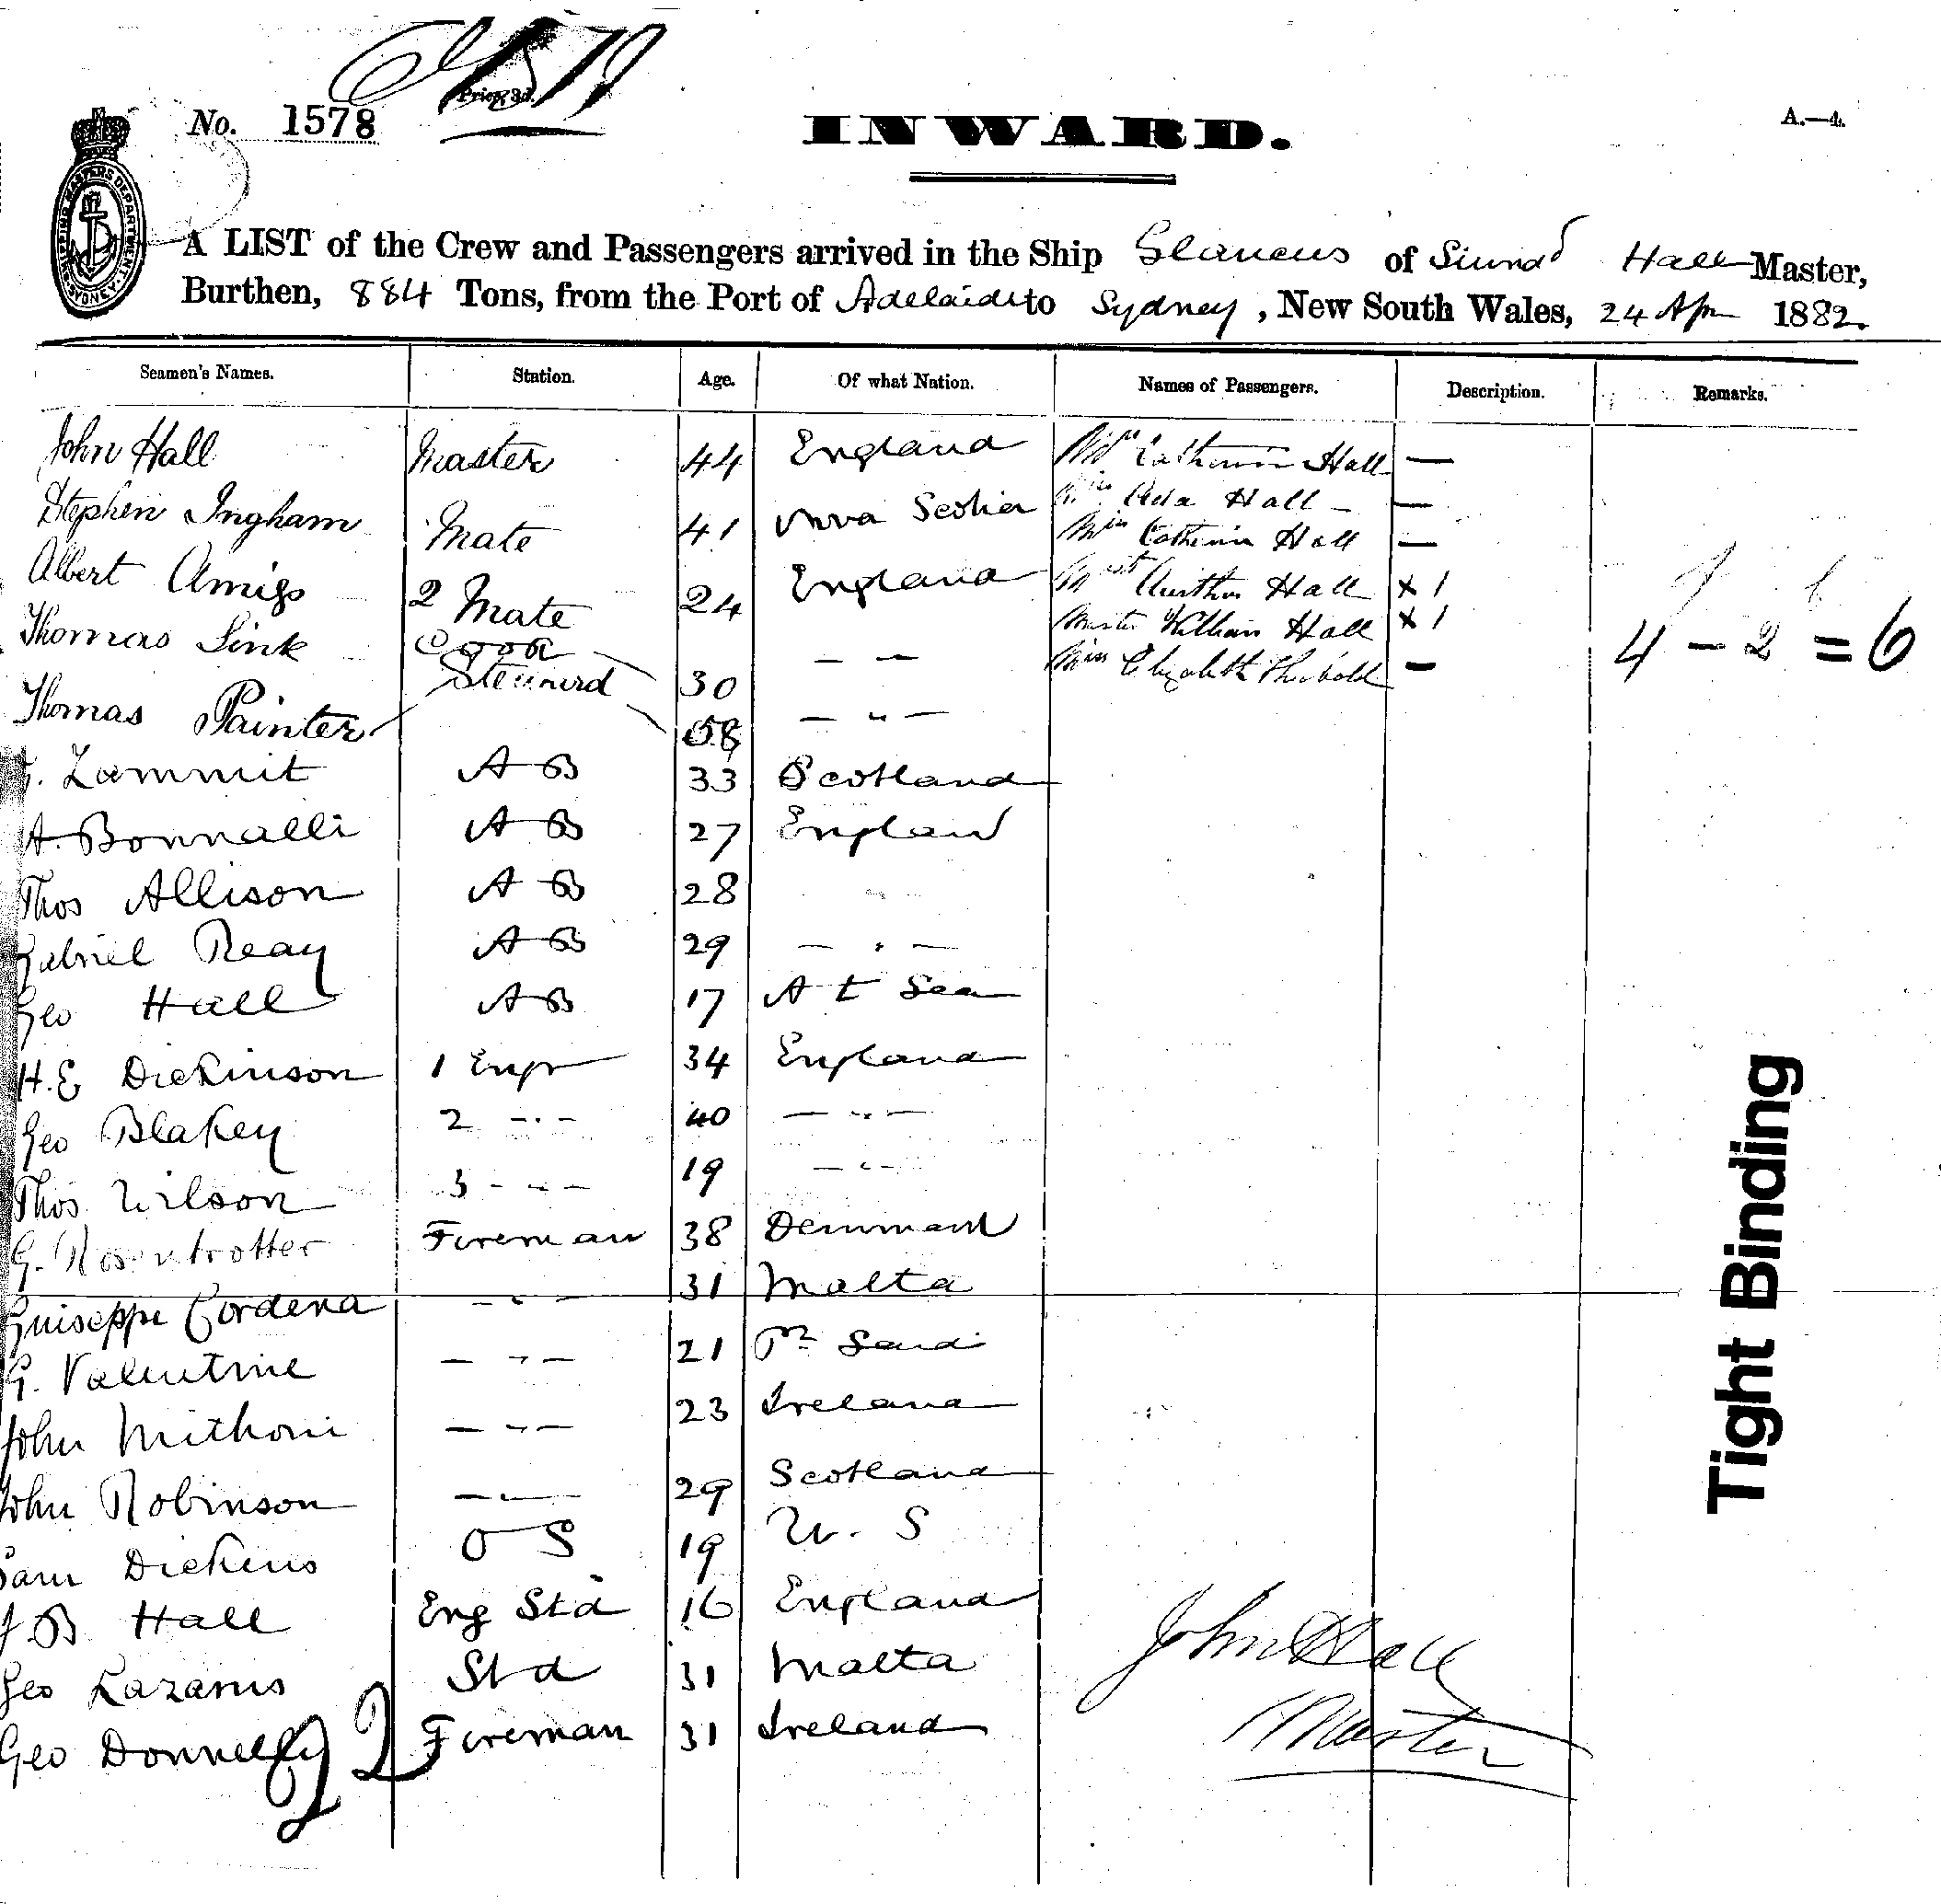 No. 1578
Price 3d.
INWARD.
A.—4.
SHIPPING MASTERS DEPARTMENT SYDNEY
A LIST of the Crew and Passengers arrived in the Ship Glaucus of Hall Master,
Burthen, 884 Tons, from the Port of Adelaide to Sydney, New South Wales, 24 Apr 1882.
Seamen's Names. Station. Age. Of what Nation. Names of Passengers. Description. Remarks.
John Hall Master 44 England Mrs Catherine Hall —
Stephen Ingham Mate 41 Nova Scotia Miss Ada Hall —
Miss Catherine Hall —
Albert Amigo 2 Mate 24 England Mast Aurthur Hall x 1
Thomas Sink Cook 30 — — Master William Hall x 1
4 — 2 = 6
Thomas Painter Steward 58 — " — Miss Elizabeth —
G. Zammit A B 33 Scotland
A. Bonnalli A B 27 England
Thos Allison A B 28
Gabriel Reay A B 29 — " —
Geo Hall A B 17 At Sea
H. E Dickinson 1 Engr 34 England
Geo Blakey 2 — " — 40 — " —
Thos Wilson 3 — " — 19 — " —
G. Rosentrotter Fireman 38 Denmark
Guiseppe Cordena — " — 31 Malta
G. Valentine — " — 21 
John Mithoni — " — 23 Ireland
John Robinson — " — 29 Scotland
Sam Dickens O S 19 U. S
J. B Hall Eng Std 16 England
Geo Lazarus Std 31 Malta
Geo Donnelly Fireman 31 Ireland
22
John Hall
Master
Tight Binding